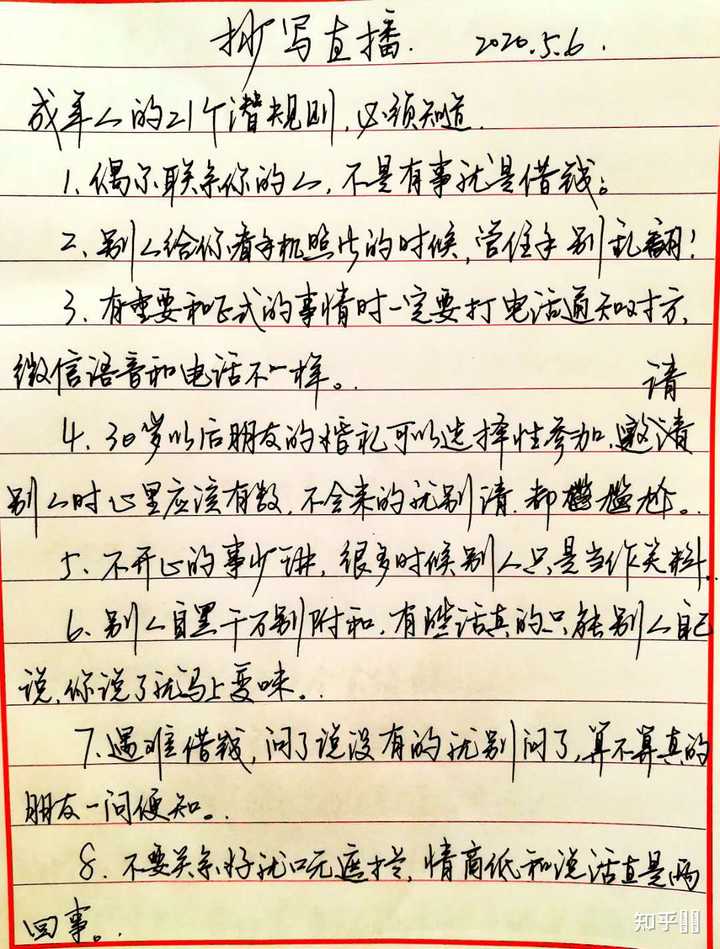 抄写直播. 2020.5.6.
成年人的21个潜规则,必须知道.
1、偶尔联系你的人,不是有事就是借钱。
2、别人给你看手机照片的时候,管住手别乱翻!
3、有重要和正式的事情时一定要打电话通知对方,
微信语音和电话不一样。
请
4、30岁以后朋友的婚礼可以选择性参加,邀请
别人时心里应该有数,不会来的就别请,都尴尬。
5、不开心的事少讲,很多时候别人只是当作笑料。
6、别人自黑千万别附和,有些话真的只能别人自己
说,你说了就马上变味。
7、遇难借钱,问了说没有的就别问了,算不算真的
朋友一问便知。
8、不要关系好就口无遮拦,情商低和说话直是两
回事。
知乎